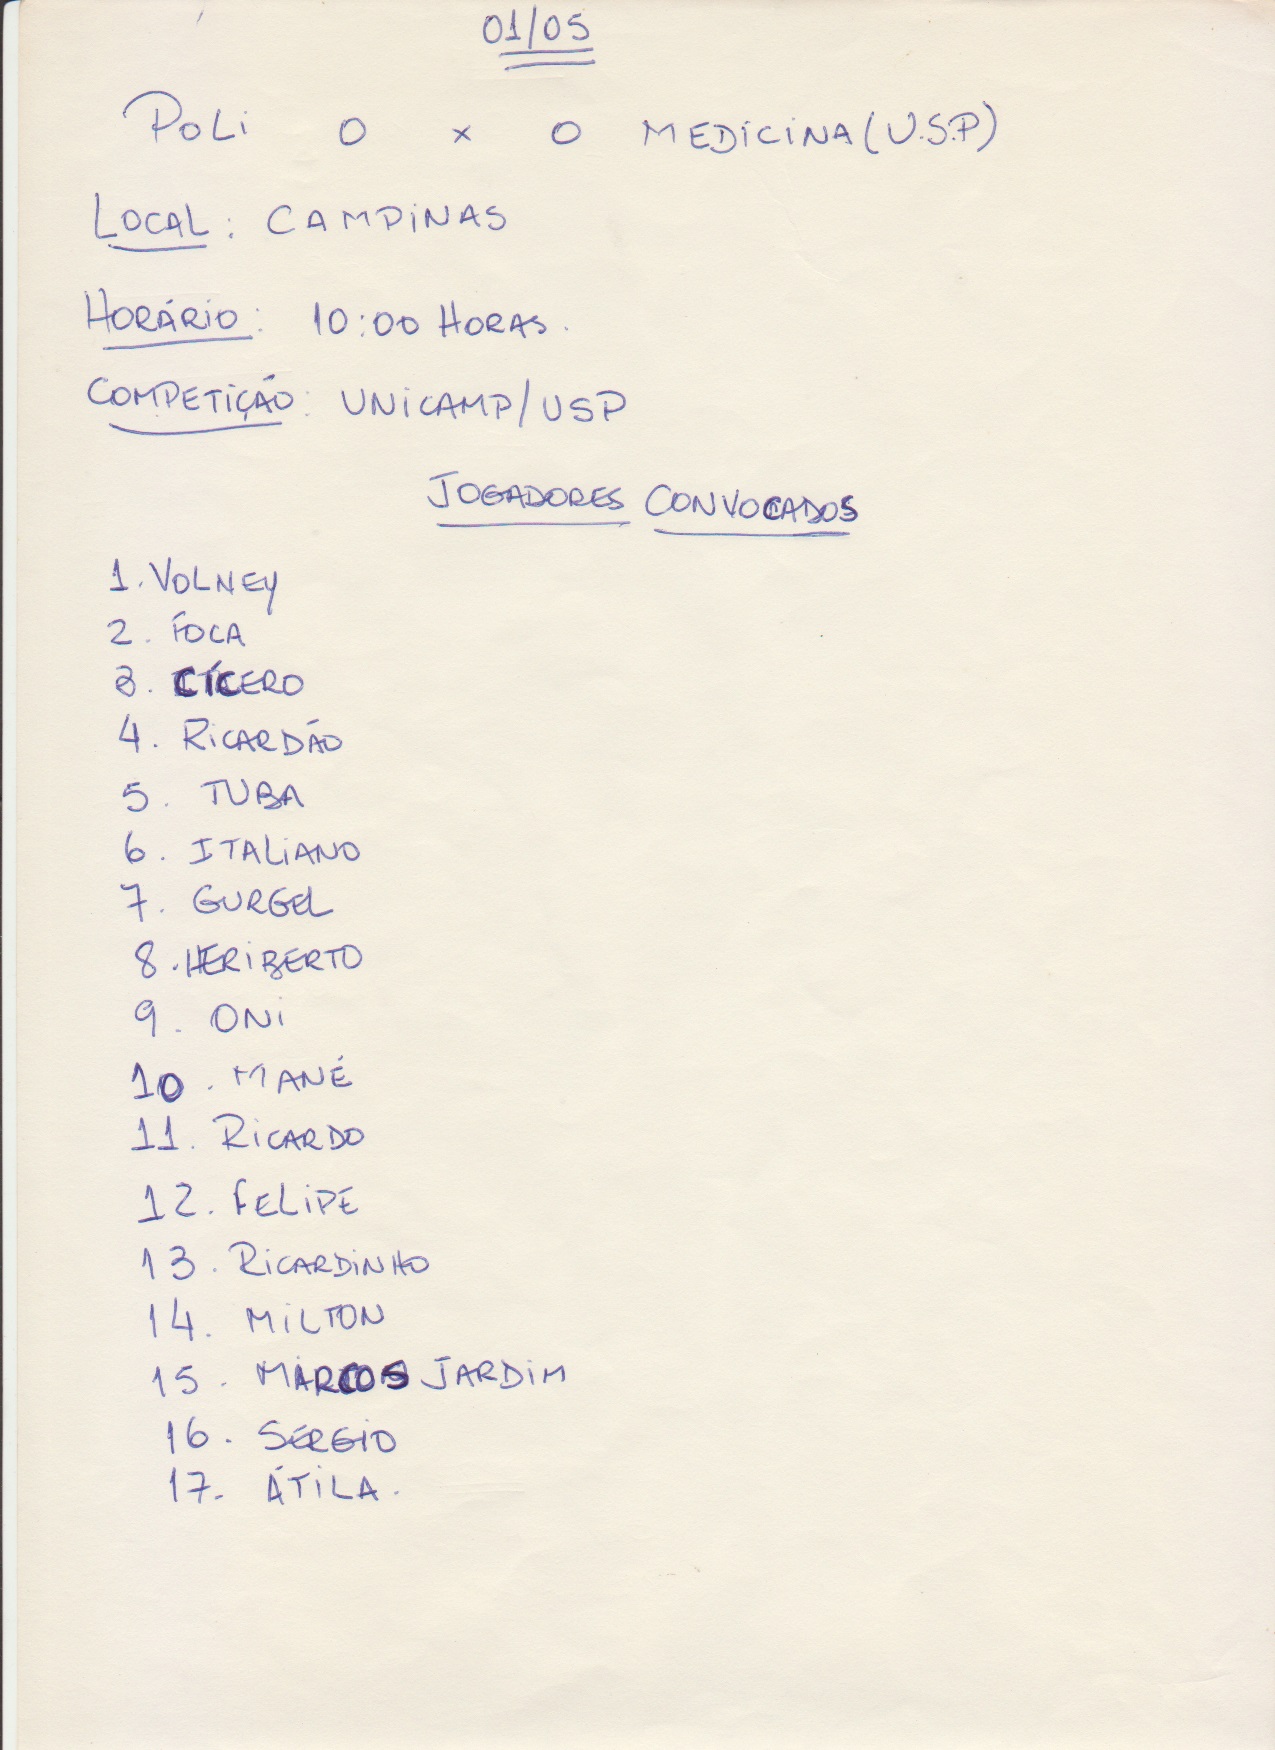 01/05
POLI 0 x 0 MEDICINA (U.S.P)
LOCAL: CAMPINAS
HORÁRIO: 10:00 HORAS.
COMPETIÇÃO: UNICAMP/USP
JOGADORES CONVOCADOS
1. VOLNEY
2. FOCA
3. CÍCERO
4. RICARDÃO
5. TUBA
6. ITALIANO
7. GURGEL
8. HERIBERTO
9. ONI
10. MANÉ
11. RICARDO
12. FELIPE
13. RICARDINHO
14. MILTON
15. MARCOS JARDIM
16. SÉRGIO
17. ÁTILA.